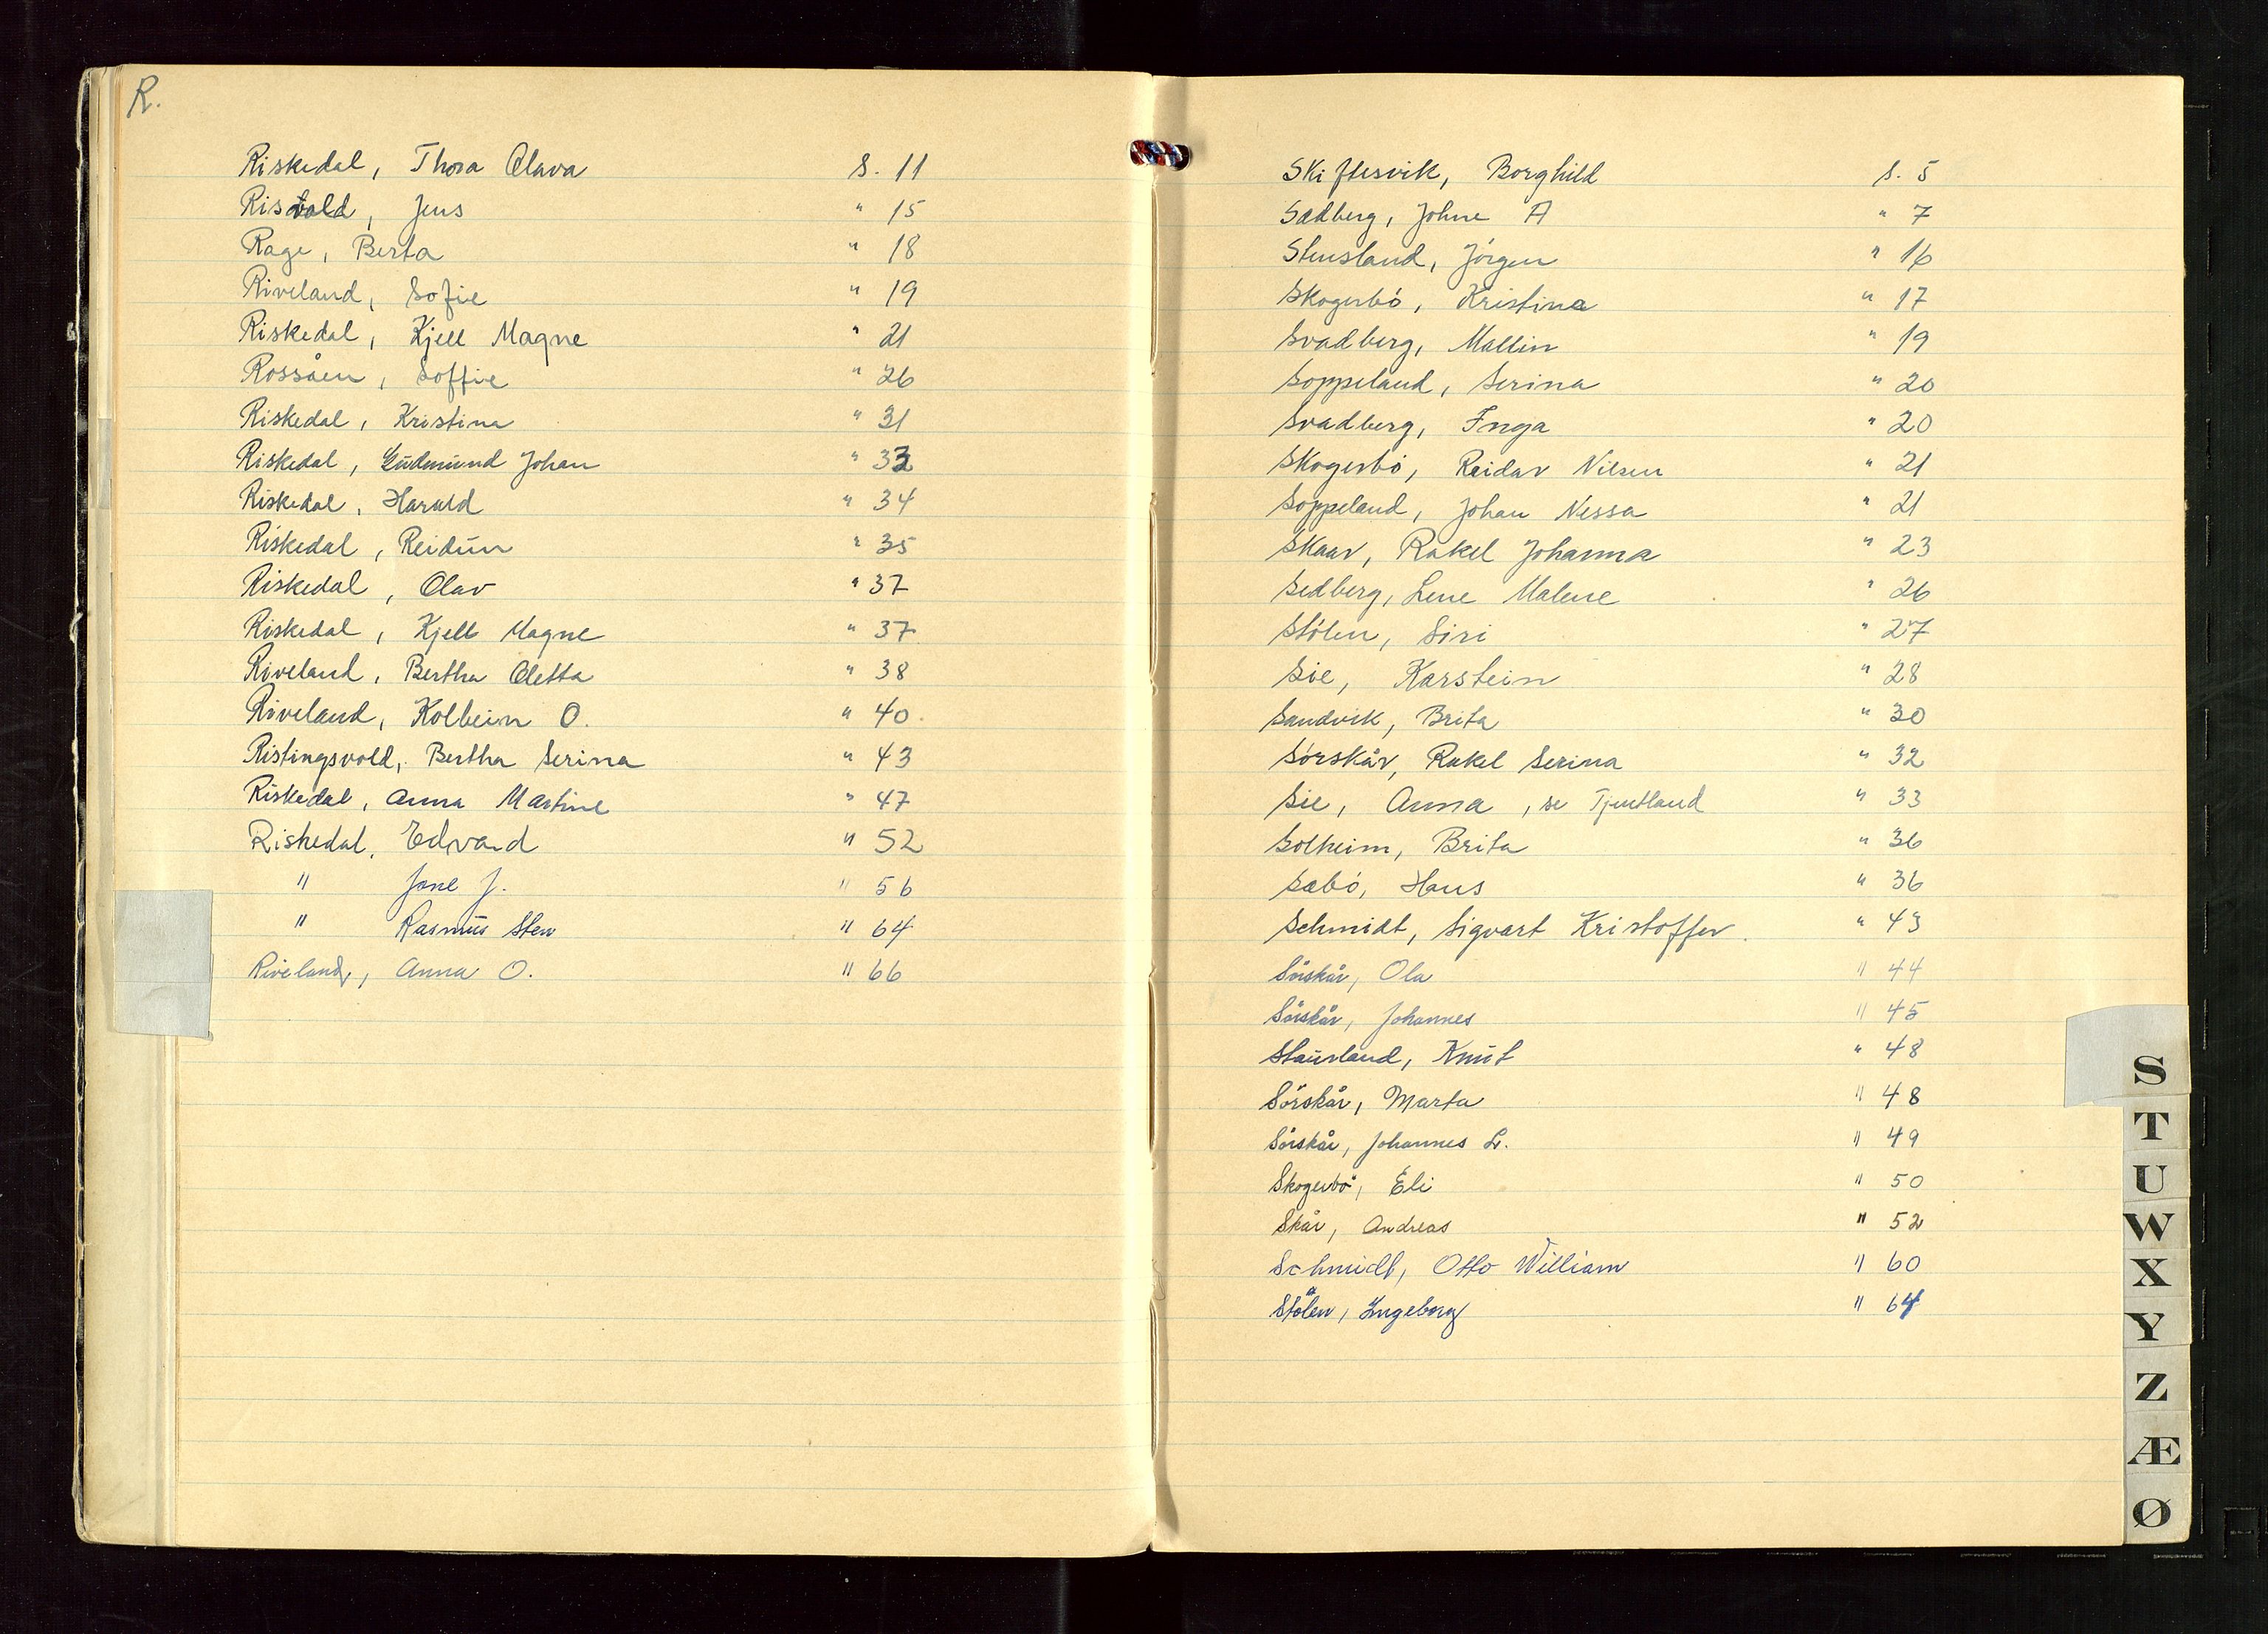 R.
Riskedal, Thora Olava s. 11
Risvold, Jens " 15
Rage, Berta " 18
Riveland, Sofie " 19
Riskedal, Kjell Magne " 21
Rossåen, Soffie " 26
Riskedal, Kristina " 31
Riskedal, Gudmund Johan " 33
Riskedal, Harald " 34
Riskedal, Reidun " 35
Riskedal, Olav " 37
Riskedal, Kjell Magne " 37
Riveland, Bertha Oletta " 38
Riveland, Kolbein O. " 40
Ristingsvold, Bertha Serina " 43
Riskedal, Anna Martine " 47
Riskedal, Edvard " 52
" Jone J. " 56
" Rasmus Sten " 64
Riveland, Anna O. " 66
Skiftesvik, Borghild s. 5
Sædberg, Johne A " 7
Stensland, Jörgen " 16
Skogerbö, Kristina " 17
Svadberg, Mallin " 19
Soppeland, Serina " 20
Svadberg, Inga " 20
Skogerbö, Reidar Nilsen " 21
Soppeland, Johan Nessa " 21
Skaar, Rakel Johanna " 23
Sedberg, Lene Malene " 26
Stölen, Siri " 27
Sie, Karstein " 28
Sandvik, Brita " 30
Sörskår, Rakel Serina " 32
Sie, Anna, se Tjentland " 33
Solheim, Brita " 36
Sæbö, Hans " 36
Schmidt, Sigvart Kristoffer " 43
Sörskår, Ola " 44
Sörskår, Johannes " 45
Staurland, Knut " 48
Sörskår, Marta " 48
Sörskår, Johannes L. " 49
Skogerbö, Eli " 50
Skår, Andreas " 52
Schmidt, Otto William " 60
Stölen, Ingeborg " 64
S
T
U
W
X
Y
Z
Æ
Ø